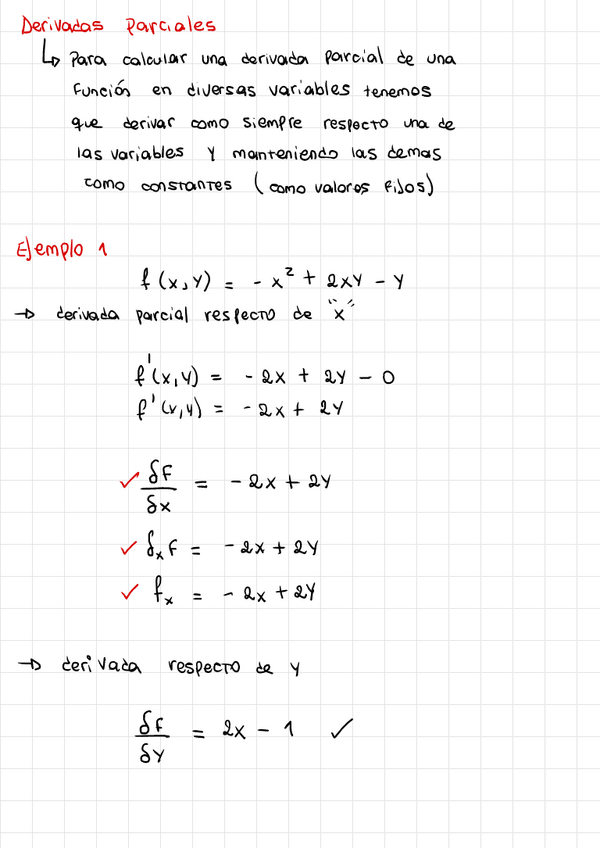 Derivadas Parciales
↳ Para calcular una derivada parcial de una
función en diversas variables tenemos
que derivar como siempre respecto una de
las variables y manteniendo las demas
como constantes (como valores fijos)
Ejemplo 1
f(x,y) = -x² + 2xy - y
→ derivada parcial respecto de "x"
f'(x,y) = -2x + 2y - 0
f'(x,y) = -2x + 2y
✓ δf/δx = -2x + 2y
✓ δₓf = -2x + 2y
✓ fₓ = -2x + 2y
→ derivada respecto de y
δf/δy = 2x - 1 ✓